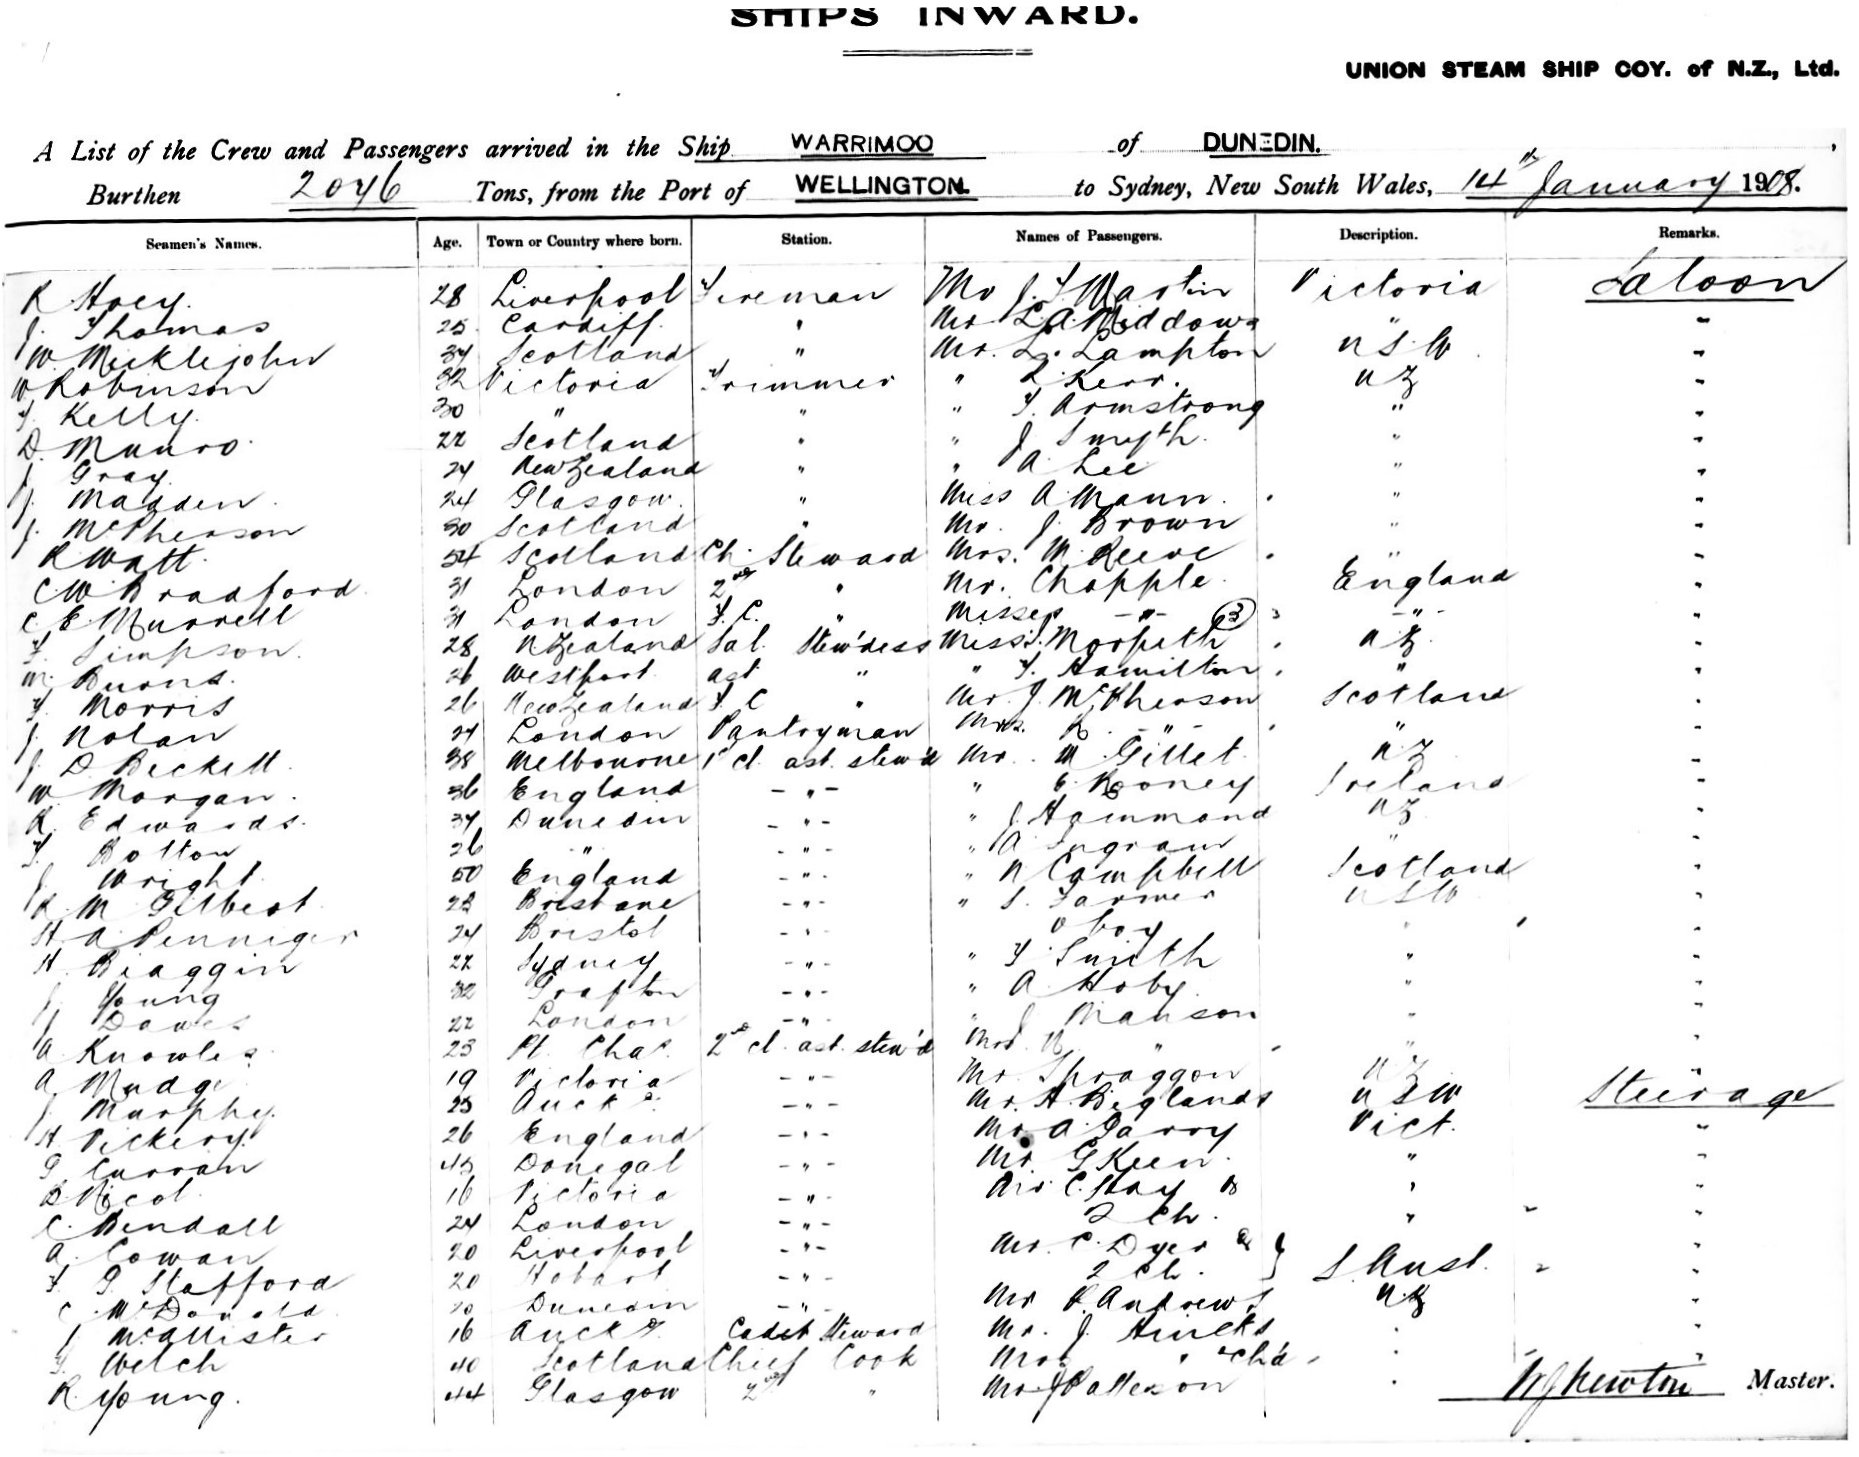 SHIPS INWARD.
UNION STEAM SHIP COY. of N.Z., Ltd.
A List of the Crew and Passengers arrived in the Ship WARRIMOO of DUNEDIN.
Burthen 2046 Tons, from the Port of WELLINGTON. to Sydney, New South Wales, 14th January 1908.
Seamen's Names. Age. Town or Country where born. Station. Names of Passengers. Description. Remarks.
R Hoey. 28 Liverpool Fireman Mr J. F. Martin Victoria Saloon
J. Thomas 25 Cardiff. " Mr L. A. " "
W. Micklejohn 34 Scotland " Mr. L. Lampton N S W "
W Robinson 32 Victoria Trimmer " Kerr. N Z "
F. Kelly. 30 " " " F. Armstrong " "
D. Munro. 22 Scotland " " J Smyth. " "
J. Gray. 24 New Zealand " " A Lee " "
J. Madden. 24 Glasgow. " Miss A. Mann. " "
J. McPherson 30 Scotland " Mr. J. Brown " "
R Watt. 54 Scotland Ch. Steward Mrs. M. Reeve " "
C W. Bradford. 31 London 2nd " Mr. Chapple. England "
C E Murrell 31 London F. C. " Misses -"- (3) -"- "
F. Simpson. 28 N Zealand Sal. Stew'dess Miss J. Morpeth N Z. "
M. Burns. 26 Westport ast " " F. Hamilton " "
F. Morris 26 New Zealand F. C " Mr. J. McPherson Scotland "
J. Nolan 24 London Pantryman Mrs. R. -"- " "
J D. Beckett. 38 Melbourne 1st cl. ast. stew'd Mr. M Gillet. N Z "
W. Morgan. 36 England -"- " Rooney Ireland "
R. Edwards. 34 Dunedin -"- " J Hammond N Z "
F. Bolton 26 " -"- " A Ingram " "
J. Wright. 50 England -"- " N Campbell Scotland "
R. M Gilbert. 28 Brisbane -"- " S. Farmer N S W "
H A Penniger 24 Bristol -"- boy " "
H. Biaggin 22 Sydney -"- " F Smith " "
J. Young 32 Grafton -"- " A Hoby. " "
J Dawes 22 London -"- " J Manson " "
A. Knowles. 23 Pt. Chas. 2nd cl. ast. stew'd Mrs " " "
A. Mudge 19 Victoria -"- Mr Spraggon N Z "
J. Murphy. 25 Auckd. -"- Mr. H. Biglands N S W Steerage
H. Vickery. 26 England -"- Mr. A. Garry Vict. "
G. Curran 45 Donegal -"- Mr. G Keen. " "
D Nicol. 16 Victoria -"- Mr. C. Hay & " "
C. Bendall 24 London -"- 2 Ch. " "
A. Cowan 20 Liverpool -"- Mr. C. Dyer & } "
F. G Stafford 20 Hobart -"- 2 Ch. S. Aust. "
C. McDonald. 20 Dunedin -"- Mr R. Andrews N Z "
J McAllister 16 Auckd. Cadet Steward Mr. J. Hincks " "
F. Welch 40 Scotland Chief Cook Mrs " & ch'd " "
R. Young. 44 Glasgow 2nd " Mr J Patterson " Newton Master.